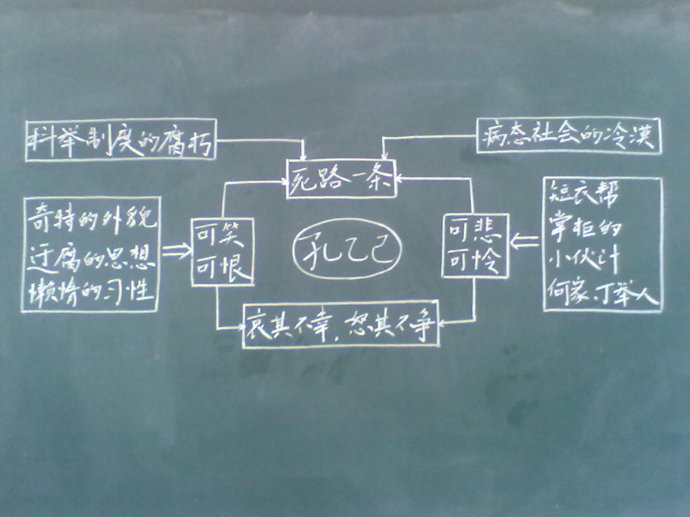 科举制度的腐朽
病态社会的冷漠
死路一条
奇特的外貌
迂腐的思想
懒惰的习性
可笑
可恨
孔乙己
可悲
可怜
短衣帮
掌柜的
小伙计
何家、丁举人
哀其不幸，怒其不争